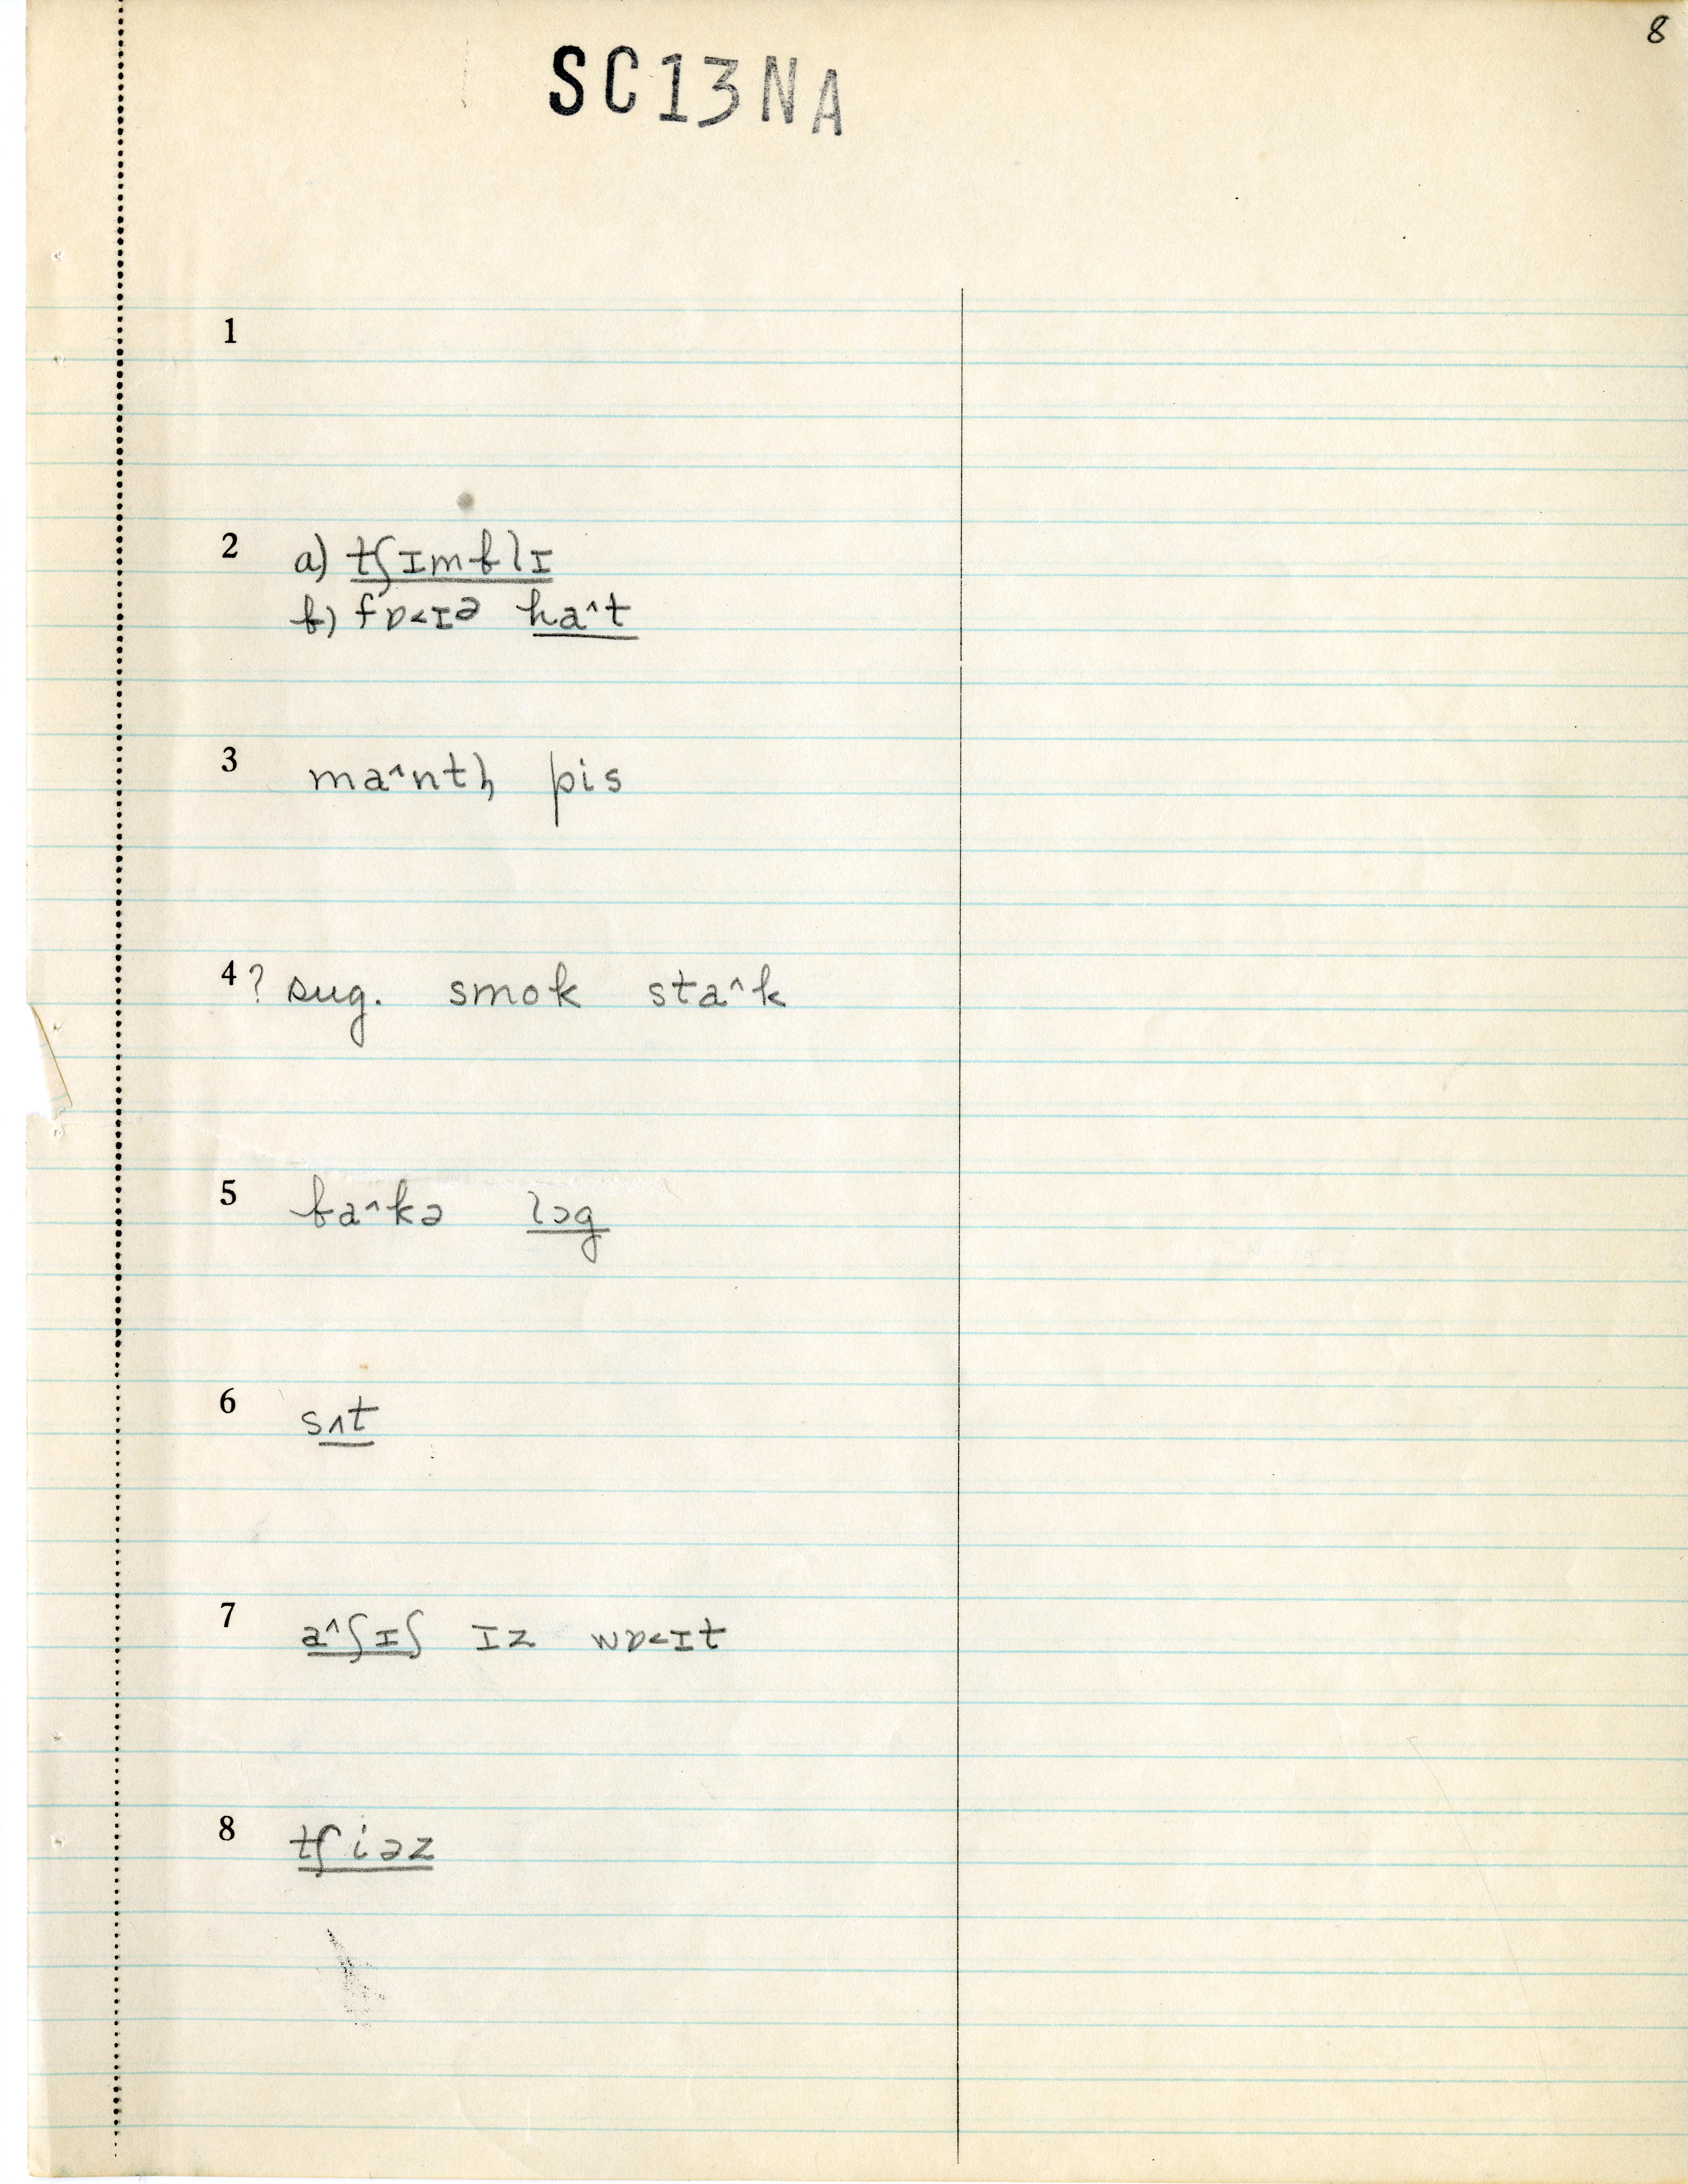 8
SC13NA
1
2 a) tʃɪmblɪ
b) fɒ<ɪə ha^t
3 ma^ntḷ pis
4 ? sug. smok sta^k
5 ba^kə lɔg
6 sʌt
7 a^ʃɪʃ ɪz wɒ<ɪt
8 tʃiəz